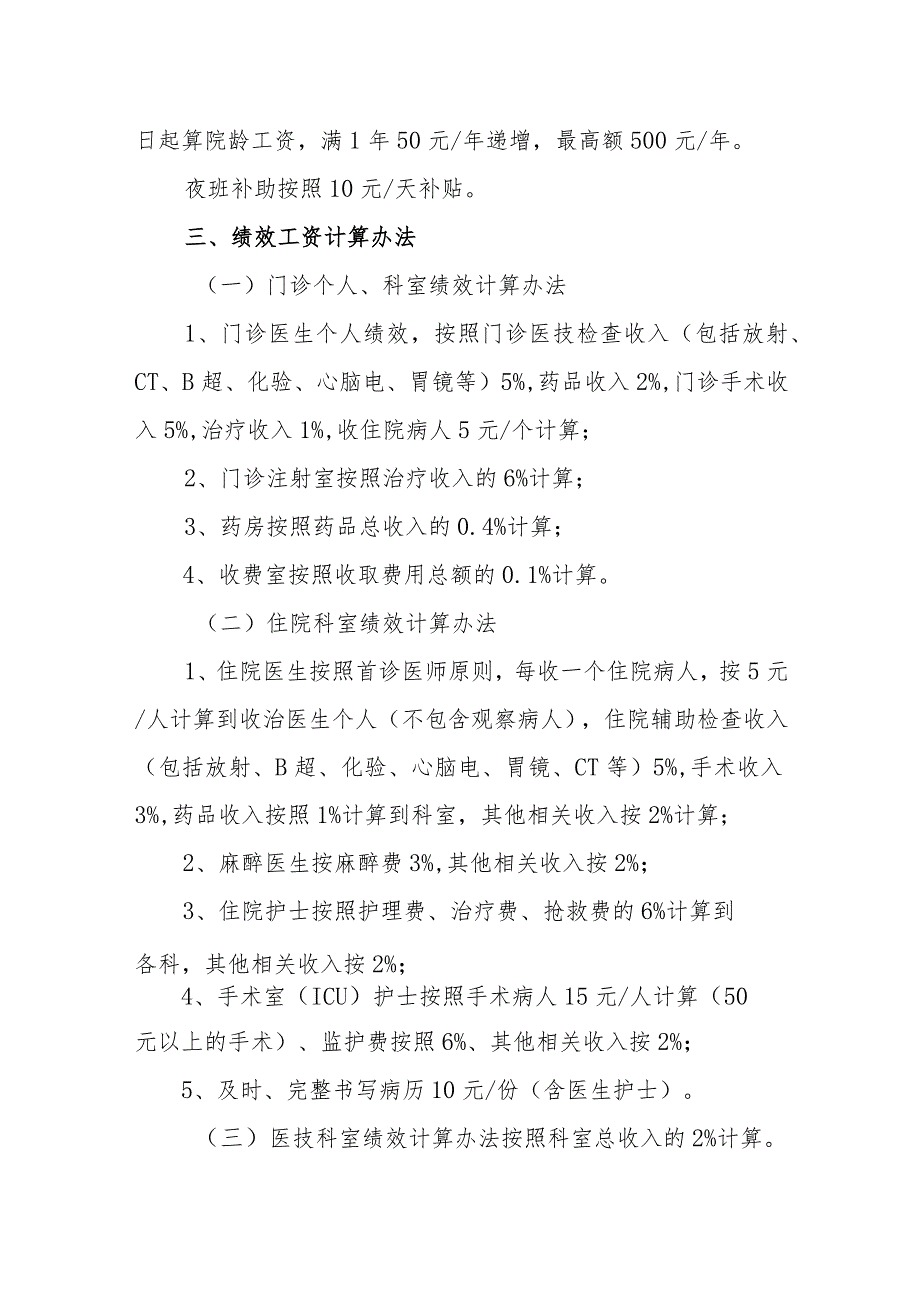 日起算院龄工资，满1年50元/年递增，最高额500元/年。
夜班补助按照10元/天补贴。
三、绩效工资计算办法
（一）门诊个人、科室绩效计算办法
1、门诊医生个人绩效，按照门诊医技检查收入（包括放射、
CT、B超、化验、心脑电、胃镜等）5%,药品收入2%,门诊手术收
入5%,治疗收入1%,收住院病人5元/个计算；
2、门诊注射室按照治疗收入的6%计算；
3、药房按照药品总收入的0.4%计算；
4、收费室按照收取费用总额的0.1%计算。
（二）住院科室绩效计算办法
1、住院医生按照首诊医师原则，每收一个住院病人，按5元
/人计算到收治医生个人（不包含观察病人），住院辅助检查收入
（包括放射、B超、化验、心脑电、胃镜、CT等）5%,手术收入
3%,药品收入按照1%计算到科室，其他相关收入按2%计算；
2、麻醉医生按麻醉费3%,其他相关收入按2%；
3、住院护士按照护理费、治疗费、抢救费的6%计算到
各科，其他相关收入按2%；
4、手术室（ICU）护士按照手术病人15元/人计算（50
元以上的手术）、监护费按照6%、其他相关收入按2%；
5、及时、完整书写病历10元/份（含医生护士）。
（三）医技科室绩效计算办法按照科室总收入的2%计算。